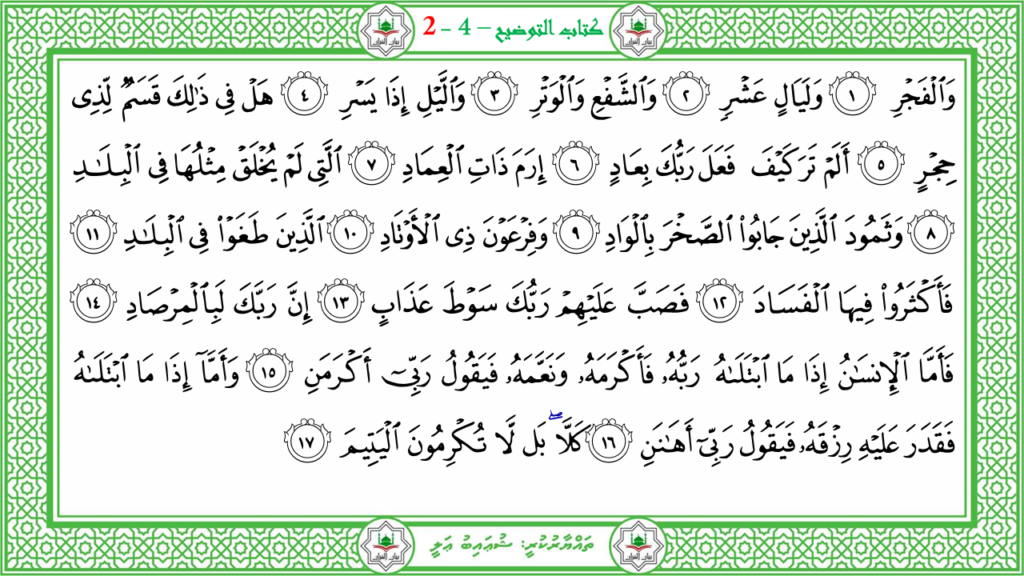 كتاب التوضيح – 4 - 2
وَٱلۡفَجۡرِ ١ وَلَيَالٍ عَشۡرٖ ٢ وَٱلشَّفۡعِ وَٱلۡوَتۡرِ ٣ وَٱلَّيۡلِ إِذَا يَسۡرِ ٤ هَلۡ فِي ذَٰلِكَ قَسَمٞ لِّذِي
حِجۡرٍ ٥ أَلَمۡ تَرَ كَيۡفَ فَعَلَ رَبُّكَ بِعَادٍ ٦ إِرَمَ ذَاتِ ٱلۡعِمَادِ ٧ ٱلَّتِي لَمۡ يُخۡلَقۡ مِثۡلُهَا فِي ٱلۡبِلَٰدِ
٨ وَثَمُودَ ٱلَّذِينَ جَابُواْ ٱلصَّخۡرَ بِٱلۡوَادِ ٩ وَفِرۡعَوۡنَ ذِي ٱلۡأَوۡتَادِ ١٠ ٱلَّذِينَ طَغَوۡاْ فِي ٱلۡبِلَٰدِ ١١
فَأَكۡثَرُواْ فِيهَا ٱلۡفَسَادَ ١٢ فَصَبَّ عَلَيۡهِمۡ رَبُّكَ سَوۡطَ عَذَابٍ ١٣ إِنَّ رَبَّكَ لَبِٱلۡمِرۡصَادِ ١٤
فَأَمَّا ٱلۡإِنسَٰنُ إِذَا مَا ٱبۡتَلَىٰهُ رَبُّهُۥ فَأَكۡرَمَهُۥ وَنَعَّمَهُۥ فَيَقُولُ رَبِّيٓ أَكۡرَمَنِ ١٥ وَأَمَّآ إِذَا مَا ٱبۡتَلَىٰهُ
فَقَدَرَ عَلَيۡهِ رِزۡقَهُۥ فَيَقُولُ رَبِّيٓ أَهَٰنَنِ ١٦ كَلَّاۖ بَل لَّا تُكۡرِمُونَ ٱلۡيَتِيمَ ١٧
ތައްޔާރުކުރީ: ޝުޢައިބު ޢަލީ